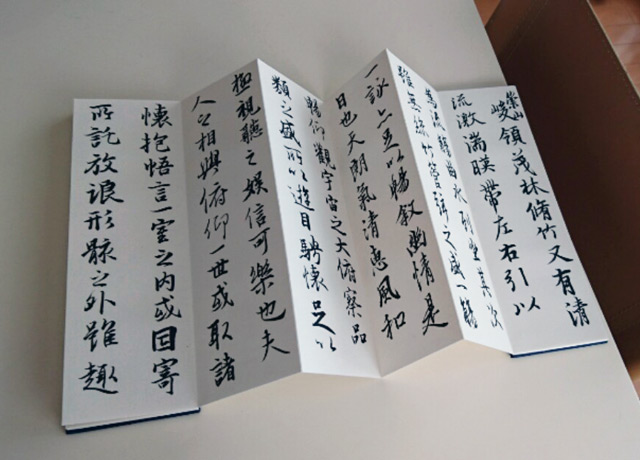 崇山峻領茂林脩竹又有清
流激湍暎帶左右引以
為流觴曲水列坐其次
雖無絲竹管弦之盛一觴
一詠亦足以暢敘幽情是
日也天朗氣清惠風和
暢仰觀宇宙之大俯察品
類之盛所以遊目騁懷足以
極視聽之娛信可樂也夫
人之相與俯仰一世或取諸
懷抱悟言一室之內或因寄
所託放浪形骸之外雖趣